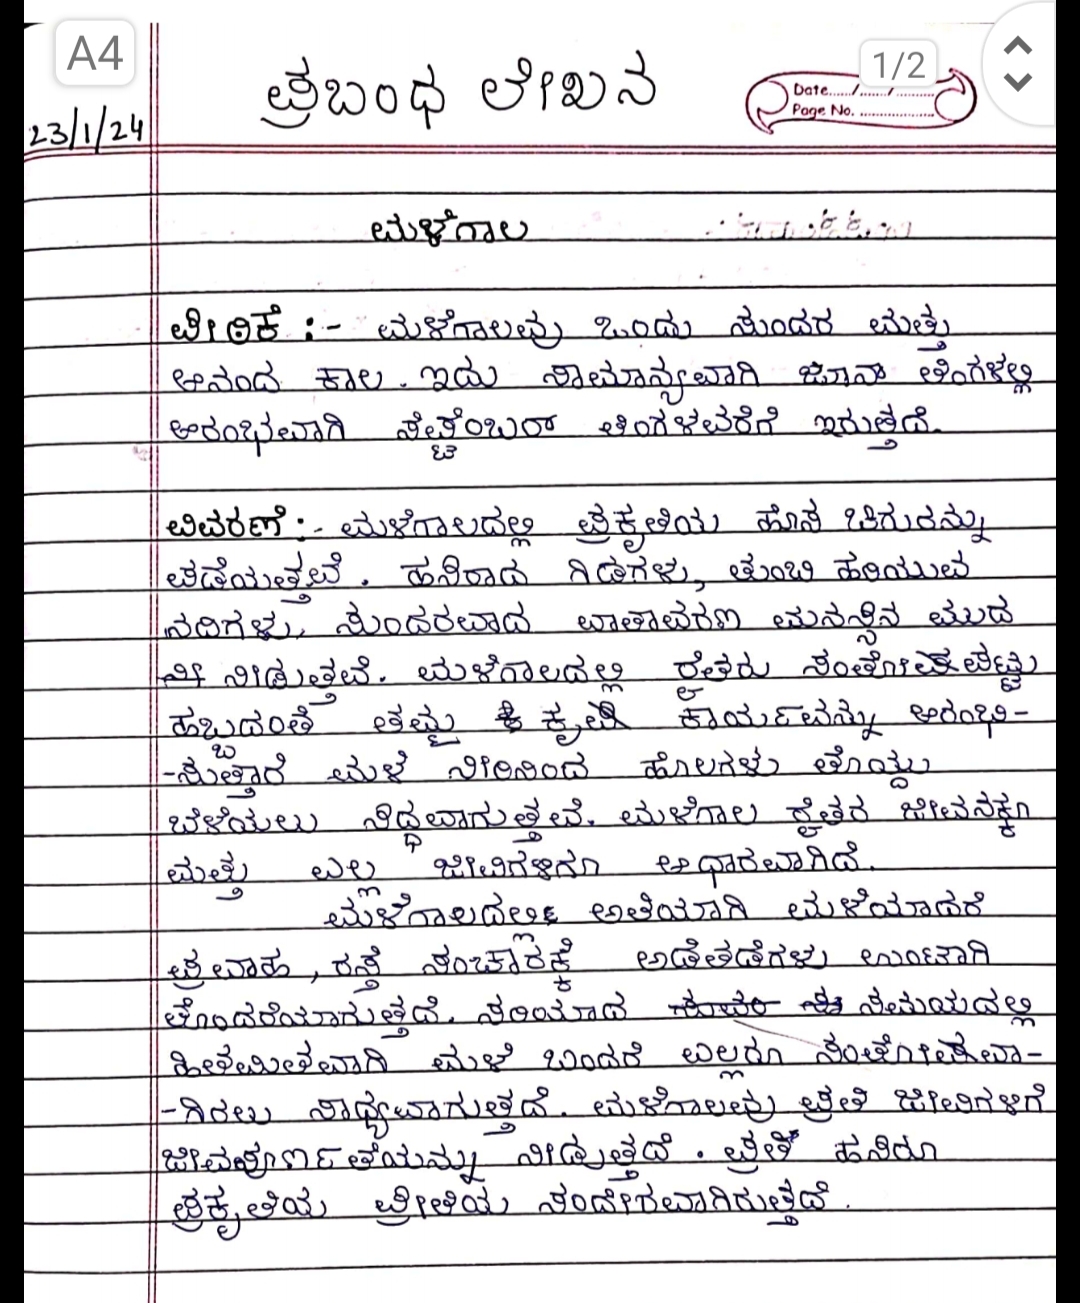 A4
1/2
ಪ್ರಬಂಧ ಲೇಖನ
Date....../......./..........
Page No. ....................
23/1/24
ಮಳೆಗಾಲ
ಪೀಠಿಕೆ :- ಮಳೆಗಾಲವು ಒಂದು ಸುಂದರ ಮತ್ತು
ಆನಂದ ಕಾಲ. ಇದು ಸಾಮಾನ್ಯವಾಗಿ ಜೂನ್ ತಿಂಗಳಲ್ಲಿ
ಆರಂಭವಾಗಿ ಸೆಪ್ಟೆಂಬರ್ ತಿಂಗಳವರೆಗೆ ಇರುತ್ತದೆ.
ವಿವರಣೆ :- ಮಳೆಗಾಲದಲ್ಲಿ ಪ್ರಕೃತಿಯ ಹೊಸ ಚಿಗುರನ್ನು
ಪಡೆಯುತ್ತವೆ. ಹಸಿರಾದ ಗಿಡಗಳು, ತುಂಬಿ ಹರಿಯುವ
ನದಿಗಳು, ಸುಂದರವಾದ ವಾತಾವರಣ ಮನಸ್ಸಿನ ಮುದ
ನೀಡುತ್ತವೆ. ಮಳೆಗಾಲದಲ್ಲಿ ರೈತರು ಸಂತೋಷಪಟ್ಟು
ಹಬ್ಬದಂತೆ ತಮ್ಮ ಕೃಷಿ ಕಾರ್ಯವನ್ನು ಆರಂಭಿ-
-ಸುತ್ತಾರೆ ಮಳೆ ನೀರಿನಿಂದ ಹೊಲಗಳು ತೊಯ್ದು
ಬೆಳೆಯಲು ಸಿದ್ಧವಾಗುತ್ತವೆ. ಮಳೆಗಾಲ ರೈತರ ಜೀವನಕ್ಕೂ
ಮತ್ತು ಎಲ್ಲ ಜೀವಿಗಳಿಗೂ ಆಧಾರವಾಗಿದೆ.
ಮಳೆಗಾಲದಲ್ಲಿ ಅತಿಯಾಗಿ ಮಳೆಯಾದರೆ
ಪ್ರವಾಹ, ರಸ್ತೆ ಸಂಚಾರಕ್ಕೆ ಅಡೆತಡೆಗಳು ಉಂಟಾಗಿ
ತೊಂದರೆಯಾಗುತ್ತದೆ. ಸರಿಯಾದ ಸಮಯದಲ್ಲಿ
ಹಿತಮಿತವಾಗಿ ಮಳೆ ಬಂದರೆ ಎಲ್ಲರೂ ಸಂತೋಷವಾ-
-ಗಿರಲು ಸಾಧ್ಯವಾಗುತ್ತದೆ. ಮಳೆಗಾಲವು ಪ್ರತಿ ಜೀವಿಗಳಿಗೆ
ಜೀವಪೂರ್ಣತೆಯನ್ನು ನೀಡುತ್ತದೆ. ಪ್ರತಿ ಹಸಿರೂ
ಪ್ರಕೃತಿಯ ಪ್ರೀತಿಯ ಸಂದೇಶವಾಗಿರುತ್ತದೆ.